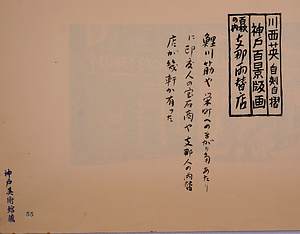 川西英 自刻自摺
神戸百景版画
百景の内 支那両替店
鯉川筋や栄町へのまがり角あたり
に印度人の宝石商や支那人の両替
店が幾軒か有った
神戸美術館蔵
55